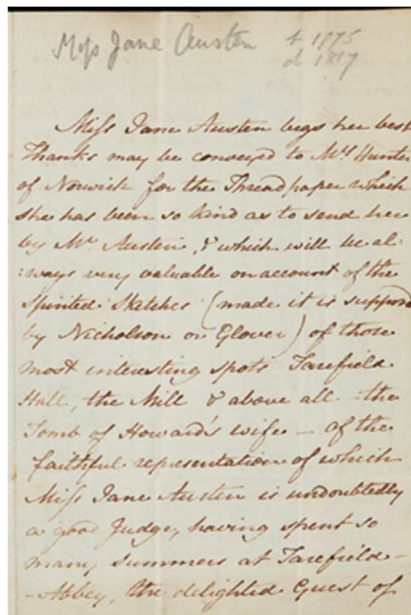 Miss Jane Austen b 1775
d 1817
Miss Jane Austen begs her best
Thanks may be conveyed to Mrs Hunter
of Norwich for the Threadpaper which
she has been so kind as to send her
by Mr Austen, & which will be al:
:ways very valuable on account of the
spirited Sketches (made it is supposed
by Nicholson or Glover) of those
most interesting spots Tarefield
Hall, the Mill & above all the
Tomb of Howard's wife — of the
faithful representation of which
Miss Jane Austen is undoubtedly
a good Judge, having spent so
many summers at Tarefield —
- Abbey, the delighted Guest of